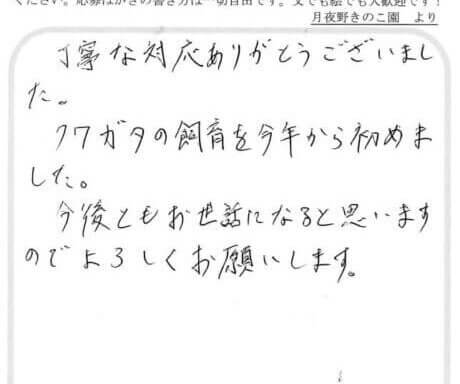 ください。応募はがきの書き方は一切自由です。文でも絵でも大歓迎です！
月夜野きのこ園　より
丁寧な対応ありがとうございまし
た。
クワガタの飼育を今年から初めま
した。
今後ともお世話になると思います
のでよろしくお願いします。